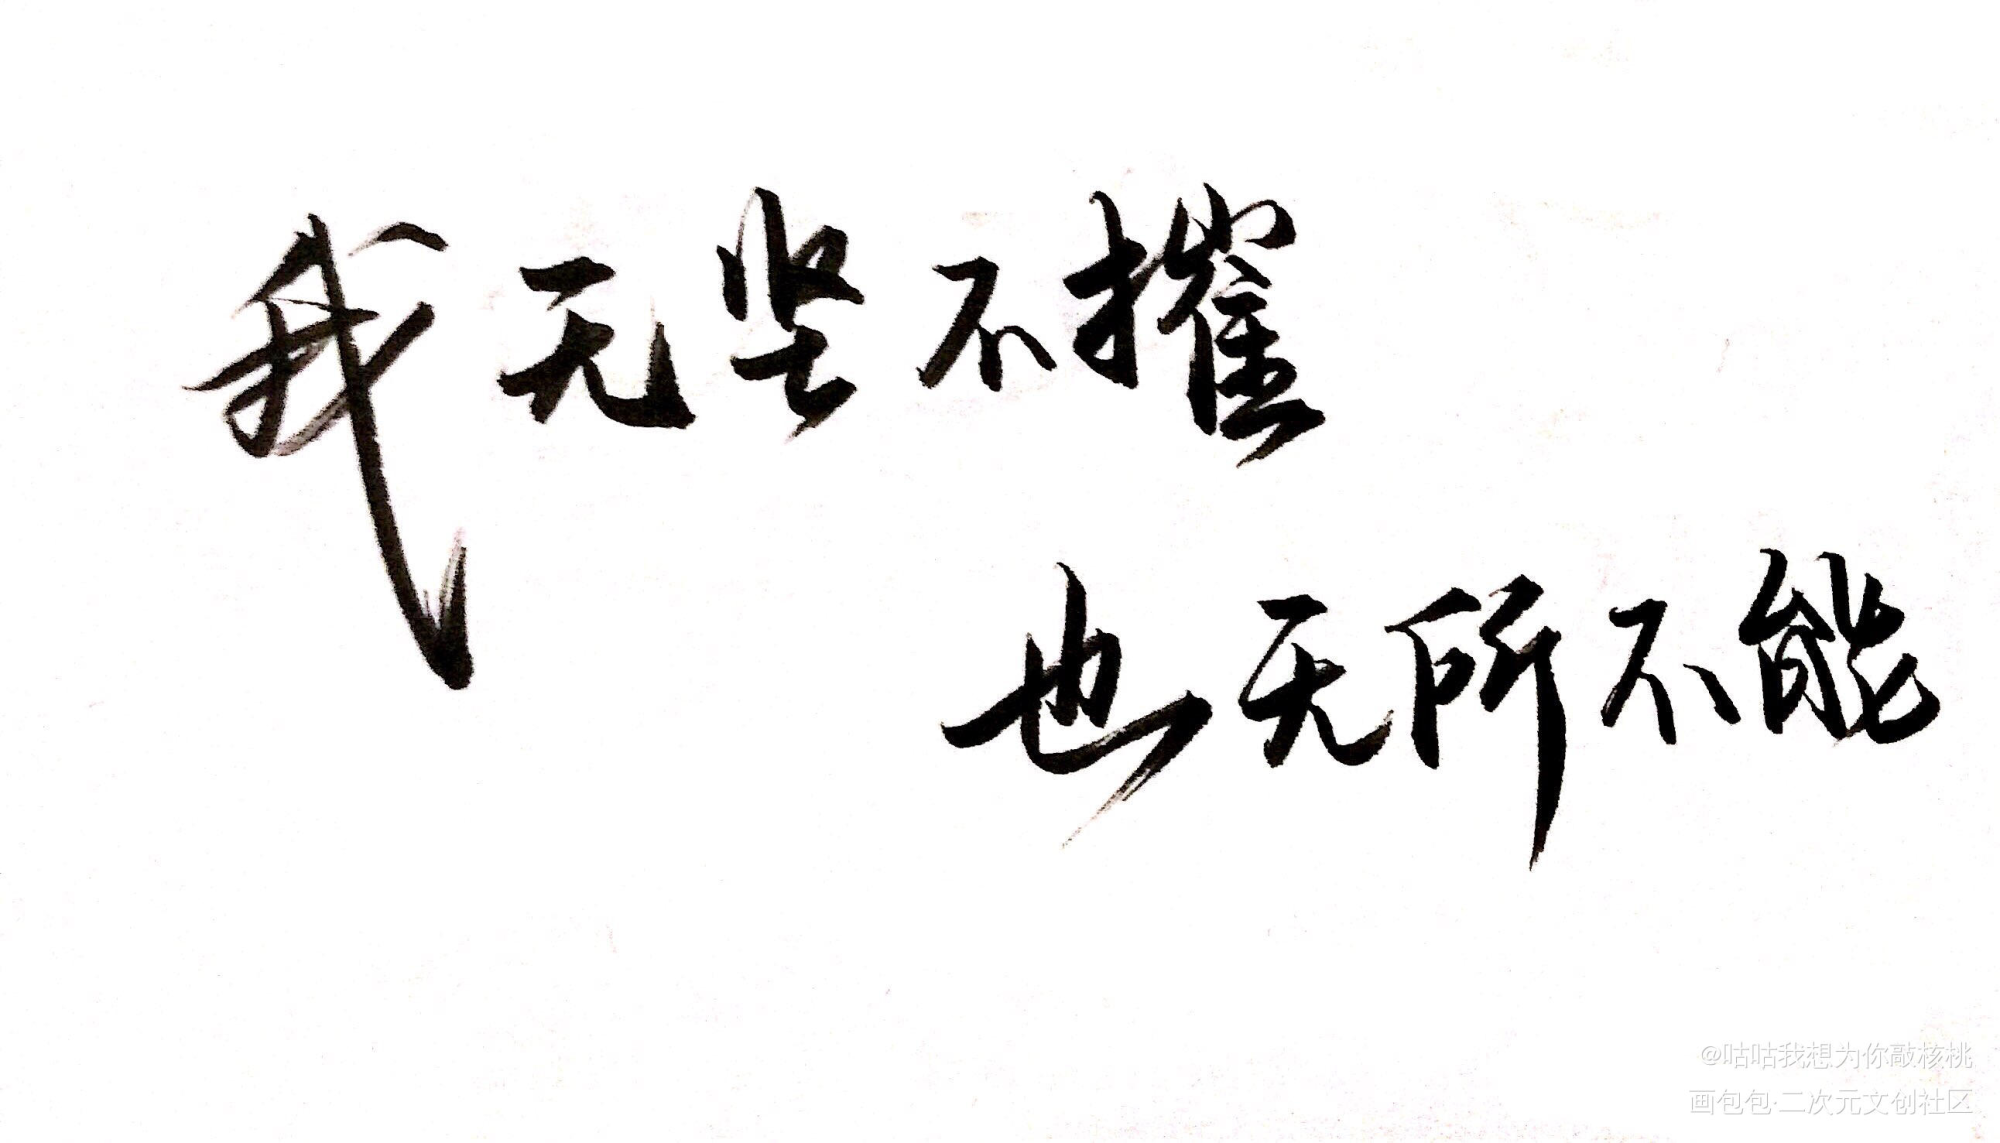 我无坚不摧
也无所不能
@咕咕我想为你敲核桃
画包包·二次元文创社区